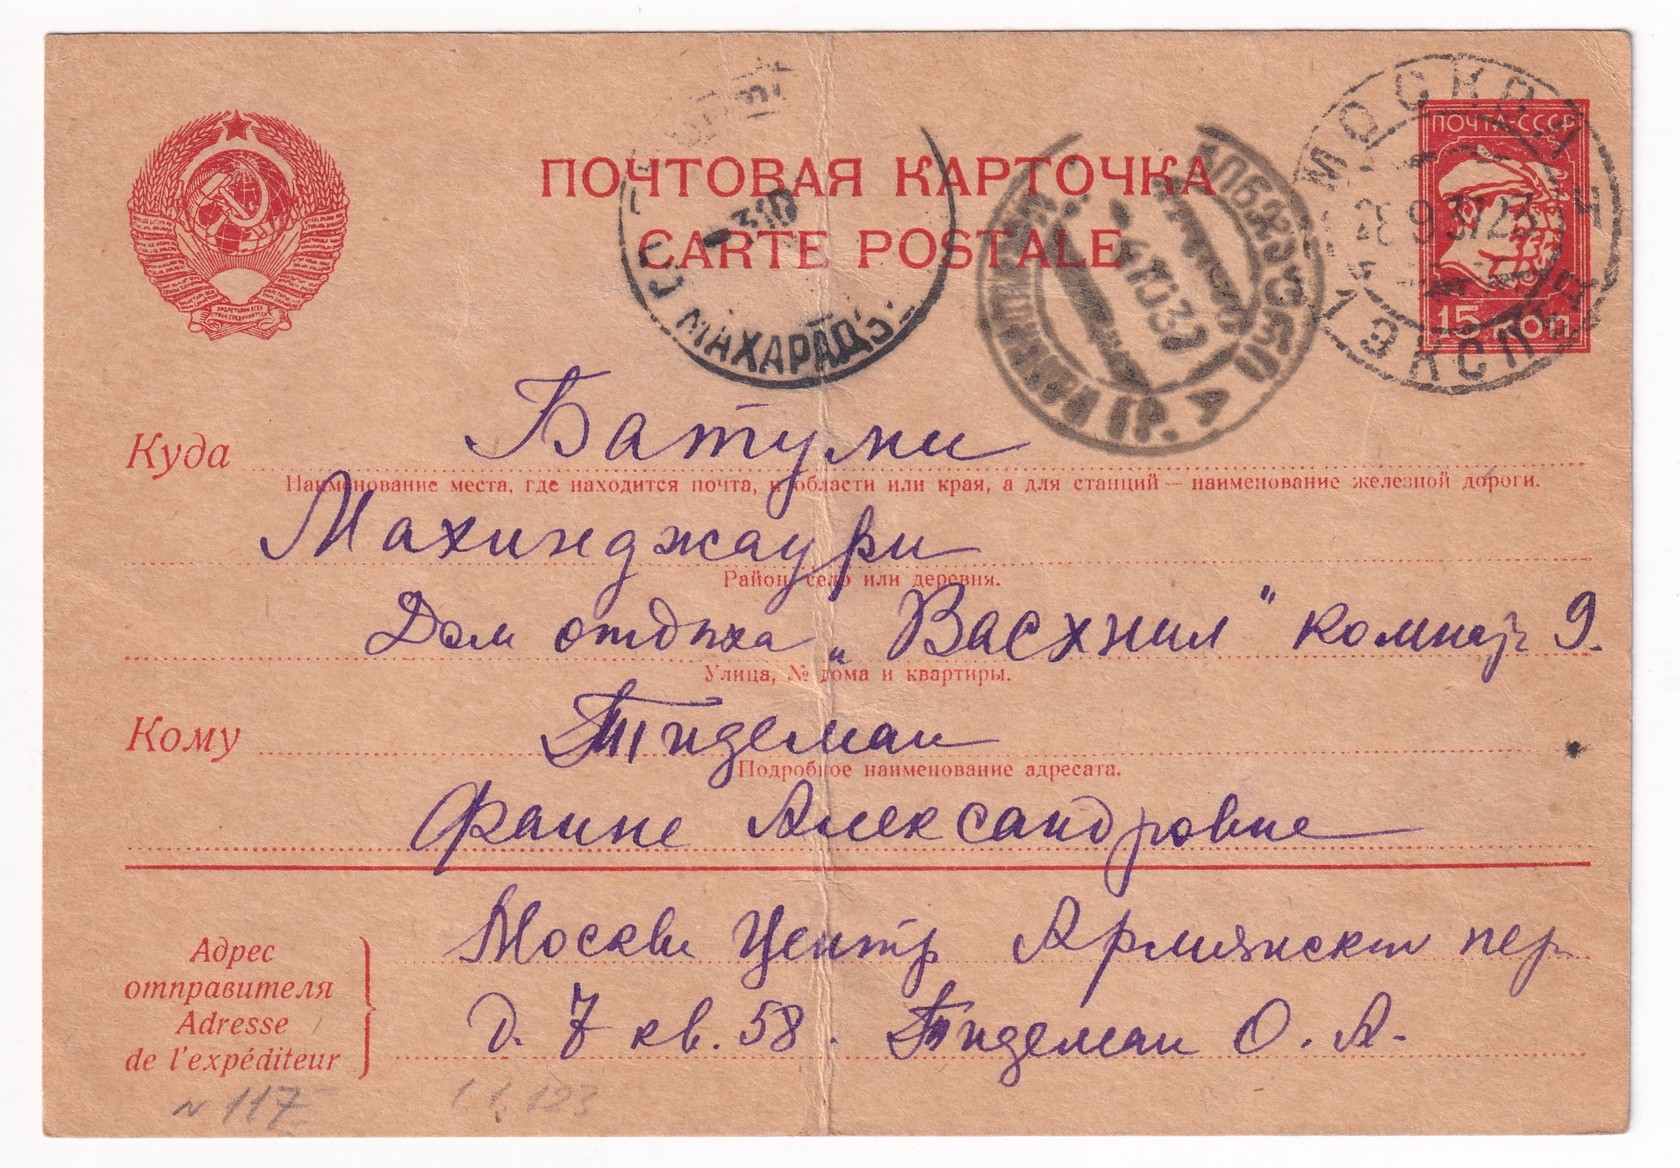 ПОЧТА-СССР
МОСКВА
ПОЧТОВАЯ КАРТОЧКА
28 9 37 23
310
CARTE POSTALE
15 коп
МАХАРАДЗЕ
ЭКСП
ГР.
Куда Батуми
Наименование места, где находится почта, и области или края, а для станций — наименование железной дороги.
Махинджаури
Район, село или деревня.
Дом отдыха „Васхнил" 9.
Улица, № дома и квартиры.
Кому Тидеман
Подробное наименование адресата.
Фаине Александровне
Москва Центр Армянский пер
Адрес
отправителя
д. 7 кв. 58. Тидеман О. А.
Adresse
de l'expéditeur
N 117 1.1.123